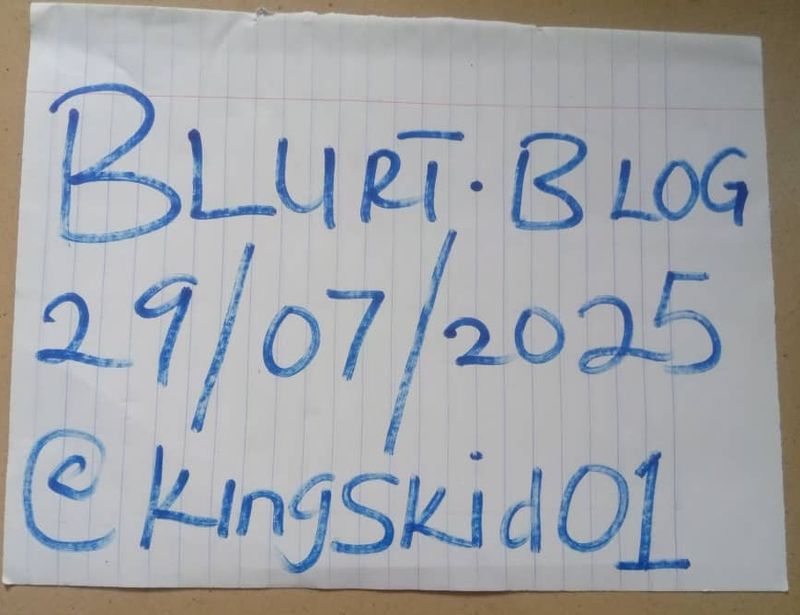 BLURT.BLOG
29/07/2025
@kingskid01